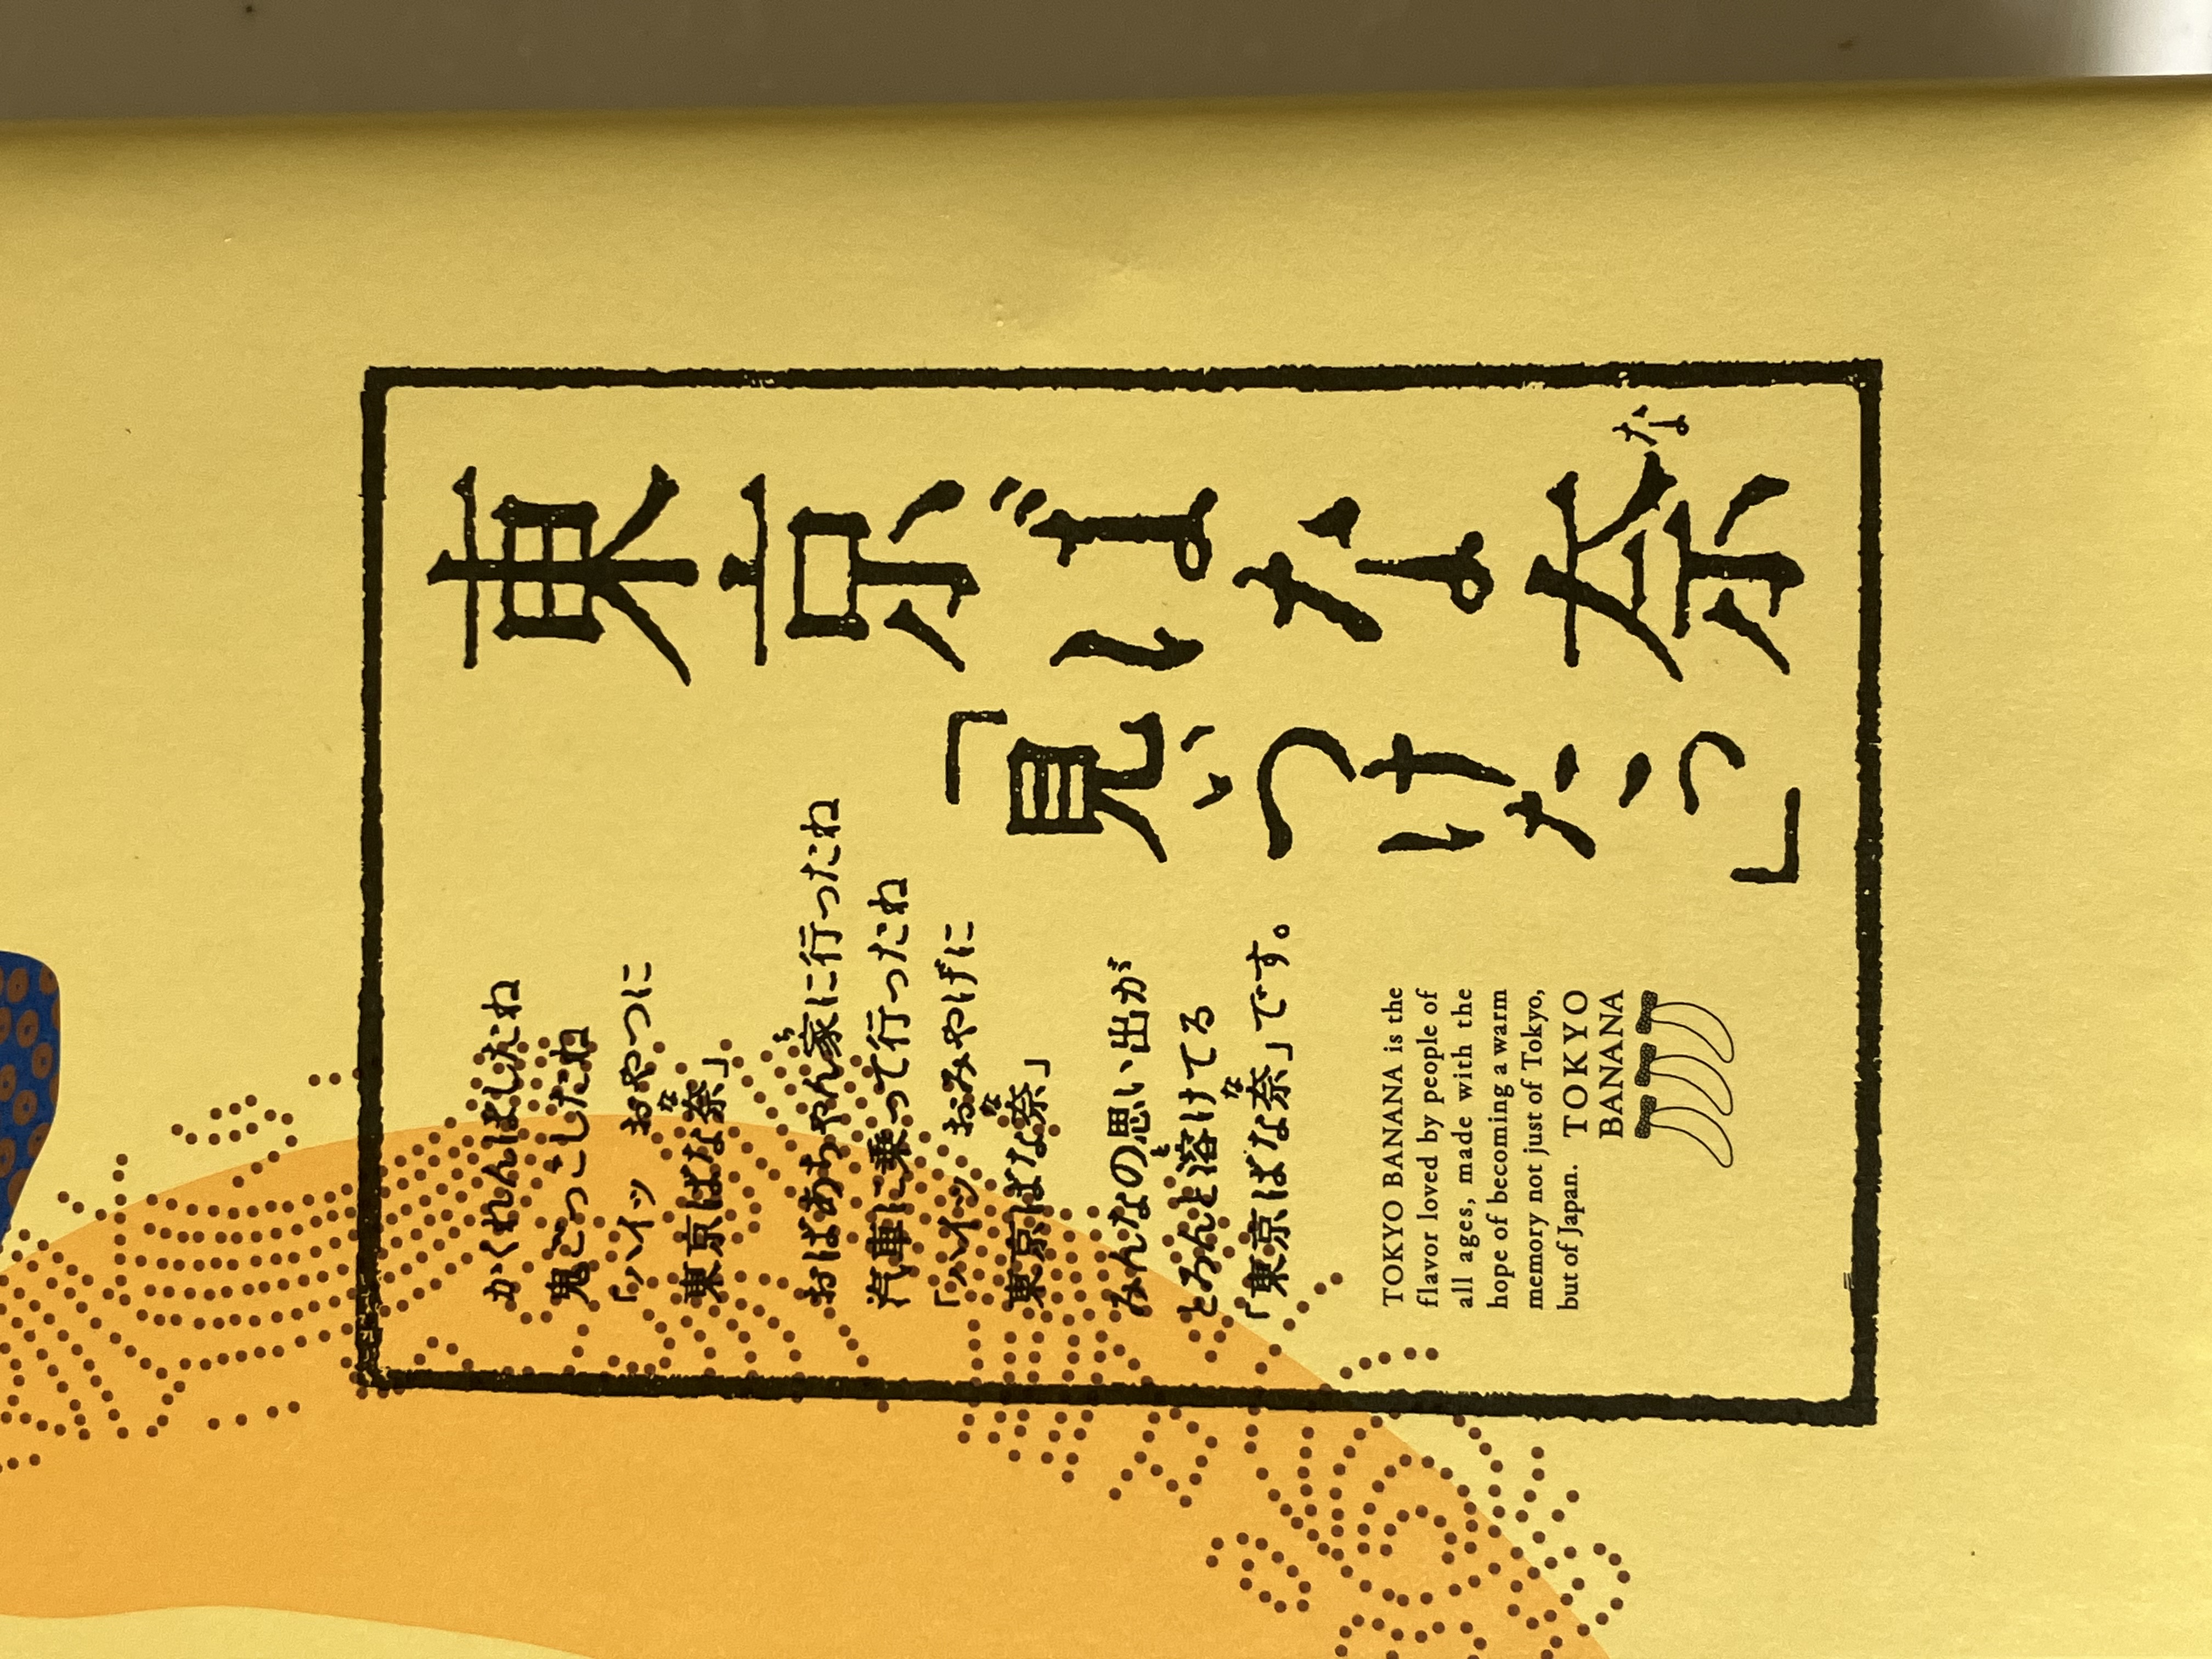 東京ばな奈
な
「見ぃつけたっ」
かくれんぼしたね
鬼ごっこしたね
「ハイッ おやつに
東京ばな奈」
な
おばあちゃん家に行ったね
ち
汽車に乗って行ったね
「ハイッ おみやげに
東京ばな奈」
な
みんなの思い出が
とろんと溶けてる
と
「東京ばな奈」です。
な
TOKYO BANANA is the
flavor loved by people of
all ages, made with the
hope of becoming a warm
memory not just of Tokyo,
but of Japan.
TOKYO
BANANA